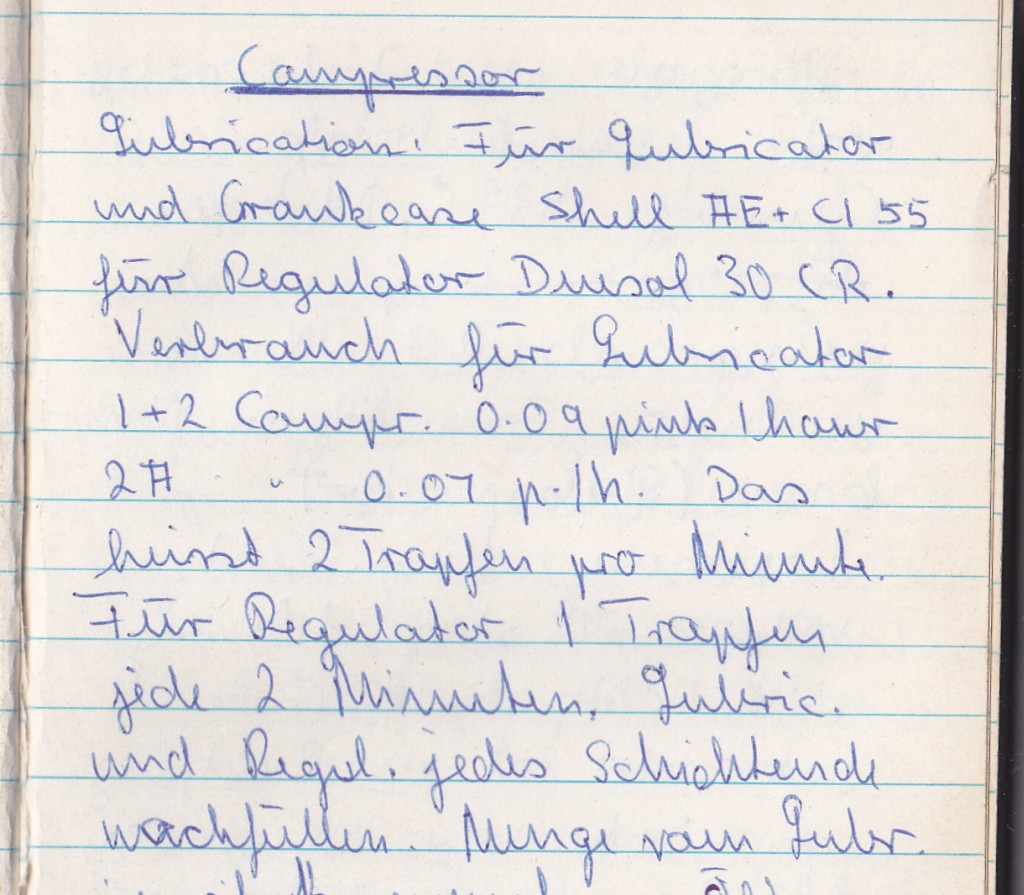 Compressor
Lubrication: Für Lubricator
und Crankcase Shell AE+ CI 55
für Regulator Dnusol 30 CR.
Verbrauch für Lubricator
1+2 Compr. 0.09 pints/hour
2A " 0.07 p./h. Das
heisst 2 Tropfen pro Minute.
Für Regulator 1 Tropfen
jede 2 Minuten. Lubric.
und Regul. jedes Schichtende
nachfüllen. Menge vom Lubr.